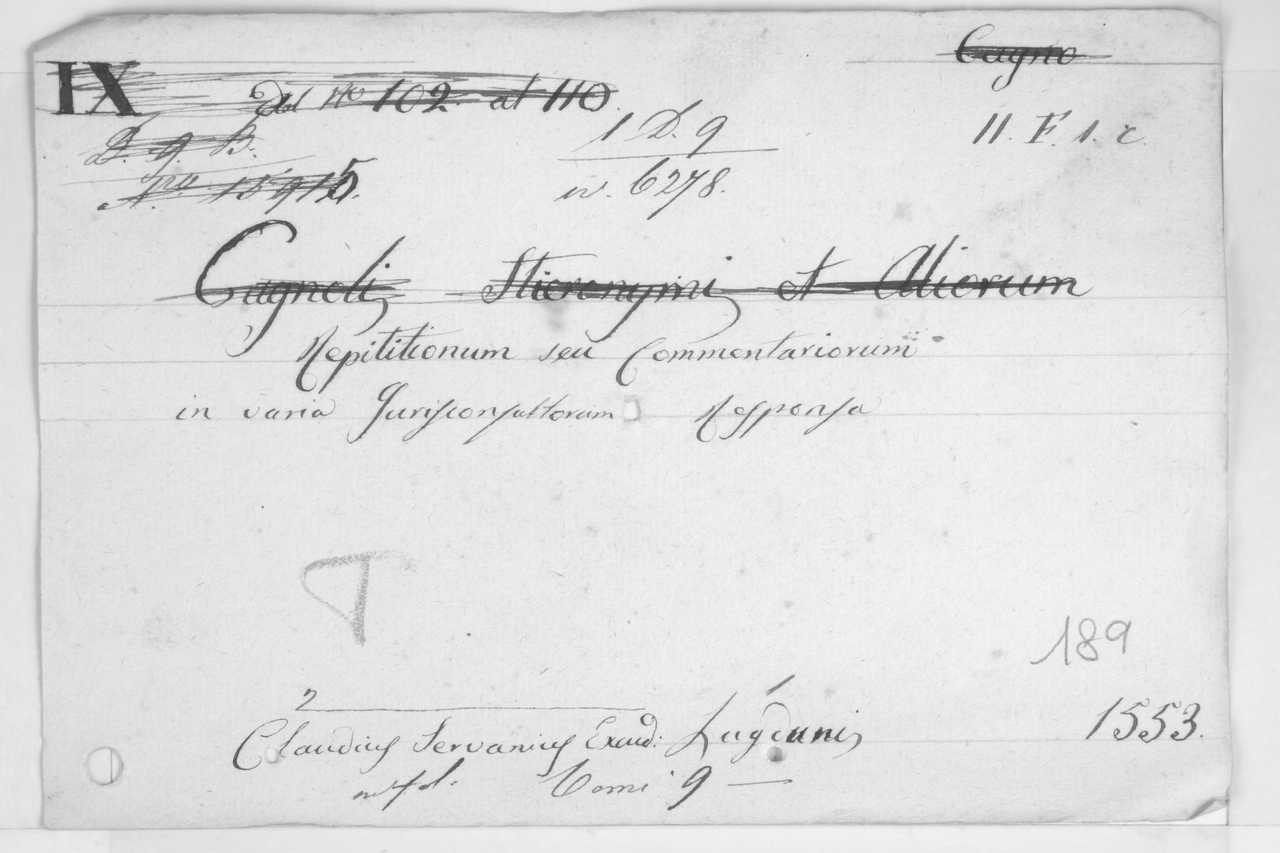 Cagno
IX Dal No 102. al 110.
D. g. B. 1 D. 9 II. F. 1. c.
No 15915. in. 6278.
Cagnoli, Hieronymi, et Aliorum
Repititionum seu Commentariorum
in varia Jurisconsultorum Responsa
189
2 1
Claudius Servanius Excud: Lugduni, 1553.
in fol. Tomi 9 —